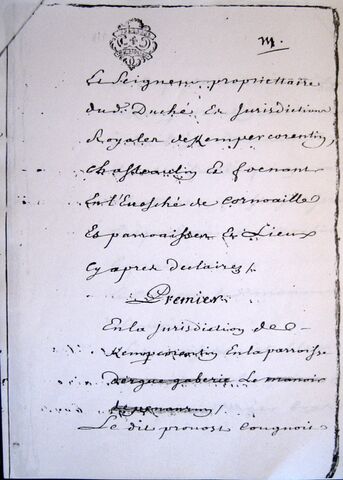 m.
Le Seigneur propriettaire
dud. Duché Es Jurisdictions
Royales de Kempercorentin,
Es foenant
En l'Evesché de Cornoaille
Es parroisses Es Lieux
Cy apres declairez /
Premier
En la Jurisdiction de
Kempercorentin En la parroisse
dergue gaberic Le manoir
Le dit provost congnoist